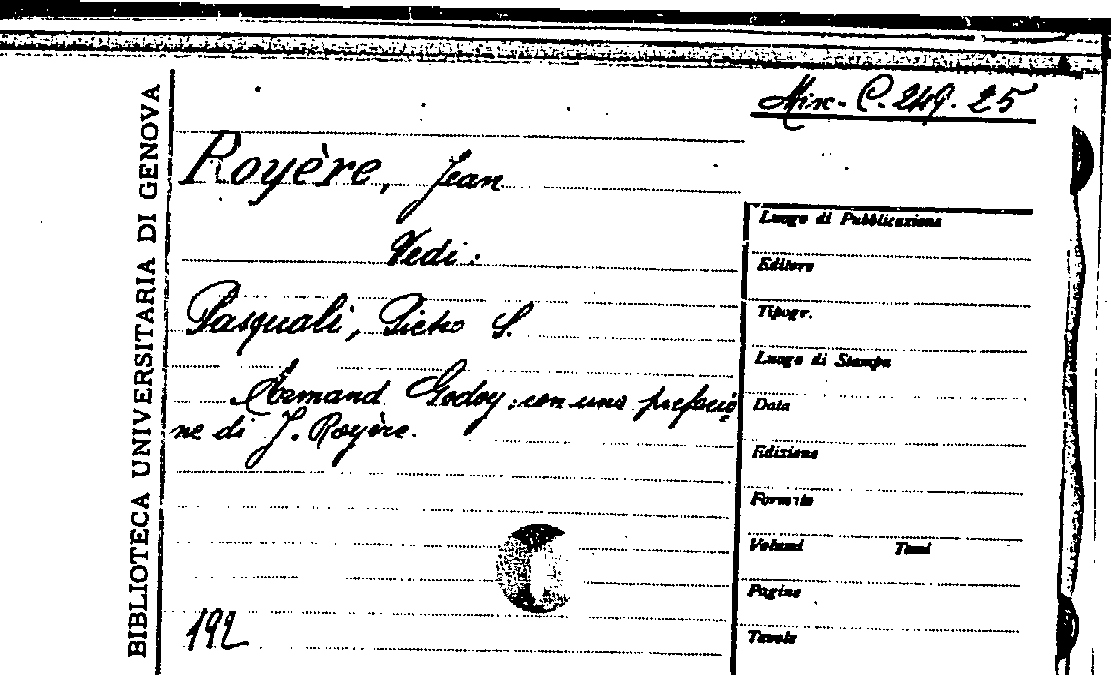 Misc. C. 249. 25
BIBLIOTECA UNIVERSITARIA DI GENOVA
Royère, Jean
Vedi:
Pasquali, Pietro S.
Armand Godoy; con una prefazio
ne di J. Royère.
192
Luogo di Pubblicazione
Editore
Tipogr.
Luogo di Stampa
Data
Edizione
Formato
Volumi Tomi
Pagine
Tavole